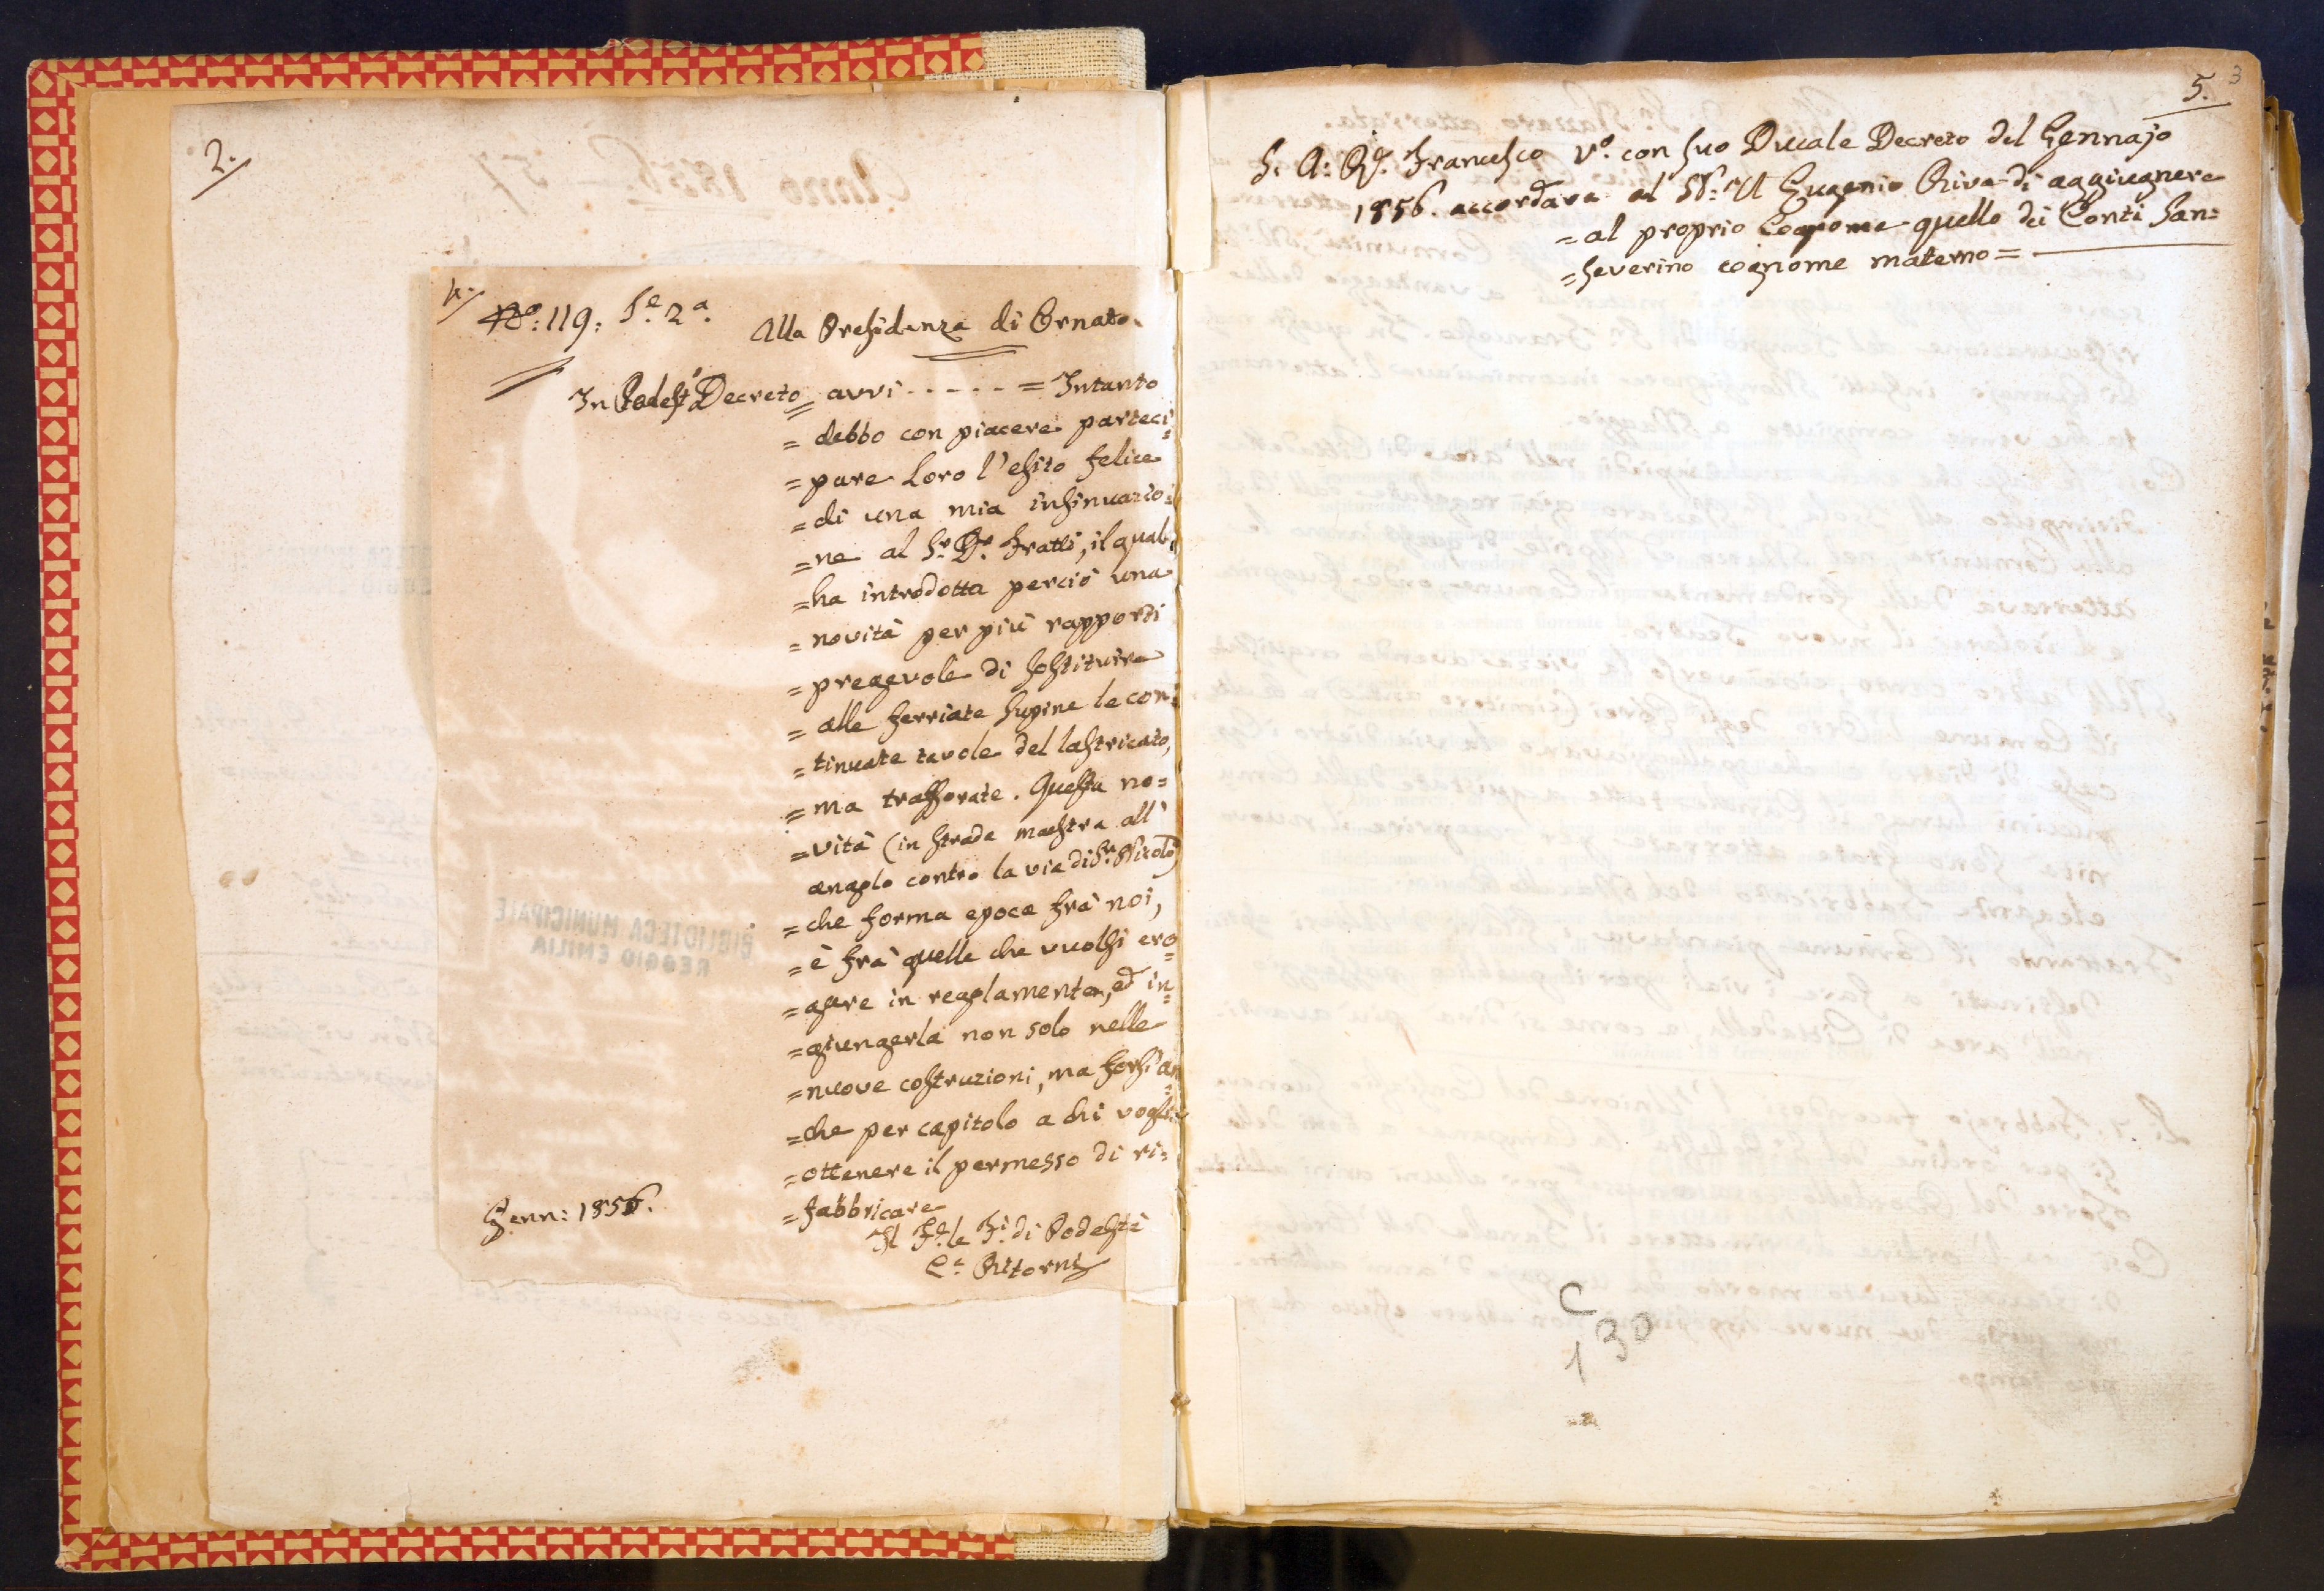 2.
4.
N.º: 119. S.e 2.a
Alla Presidenza di Ornato.
In Podest.º Decreto = avvi - - - - - = Intanto
= debbo con piacere parteci=
= pare Loro l'esito felice
= di una mia insinuazio=
= ne al S.r D.r Fratti, il quale
= ha introdotta perciò una
= novità per più rapporti
= pregevole di sostituire
= alle ferriate supine le con=
= tinuate tavole del lastricato,
= ma trafforate. Questa no=
= vità (in strada maestra all'
angolo contro la via di S.n Nicolò)
= che forma epoca frà noi,
= è frà quelle che vuolsi ero=
= gare in reglamento, ed in=
= giungerla non solo nelle
= nuove costruzioni, ma forsi an=
= che per capitolo a chi voglia
= ottenere il permesso di ri=
= fabbricare
Genn: 1856.
Il F. le F.i di Podestà
C.e Ritorni
BIBLIOTECA MUNICIPALE
REGGIO EMILIA
3
5.
S. A: R. Francesco V.º con suo Ducale Decreto del Gennajo
1856. accordava al Eugenio Riva di aggiugnere
= al proprio Cognome quello dei Conti San=
= severino cognome materno =
C
130